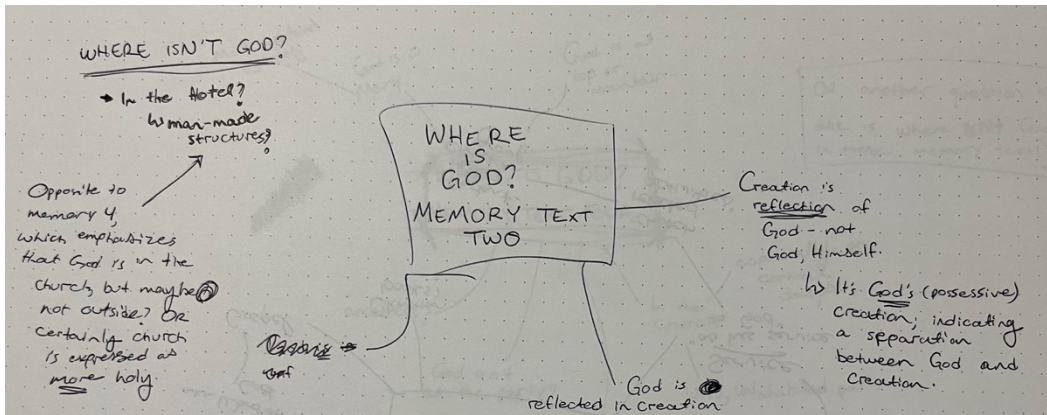 WHERE ISN'T GOD?
→ In the Hotel?
↳ man-made
structures?
Opposite to
memory 4,
which emphasizes
that God is in the
church, but maybe
not outside? OR
certainly church
is expressed as
more holy.
WHERE
IS
GOD?
MEMORY TEXT
TWO
Creation is
reflection of
God - not
God, Himself.
↳ It's God's (possessive)
creation; indicating
a separation
between God and
Creation.
God is
reflected in Creation